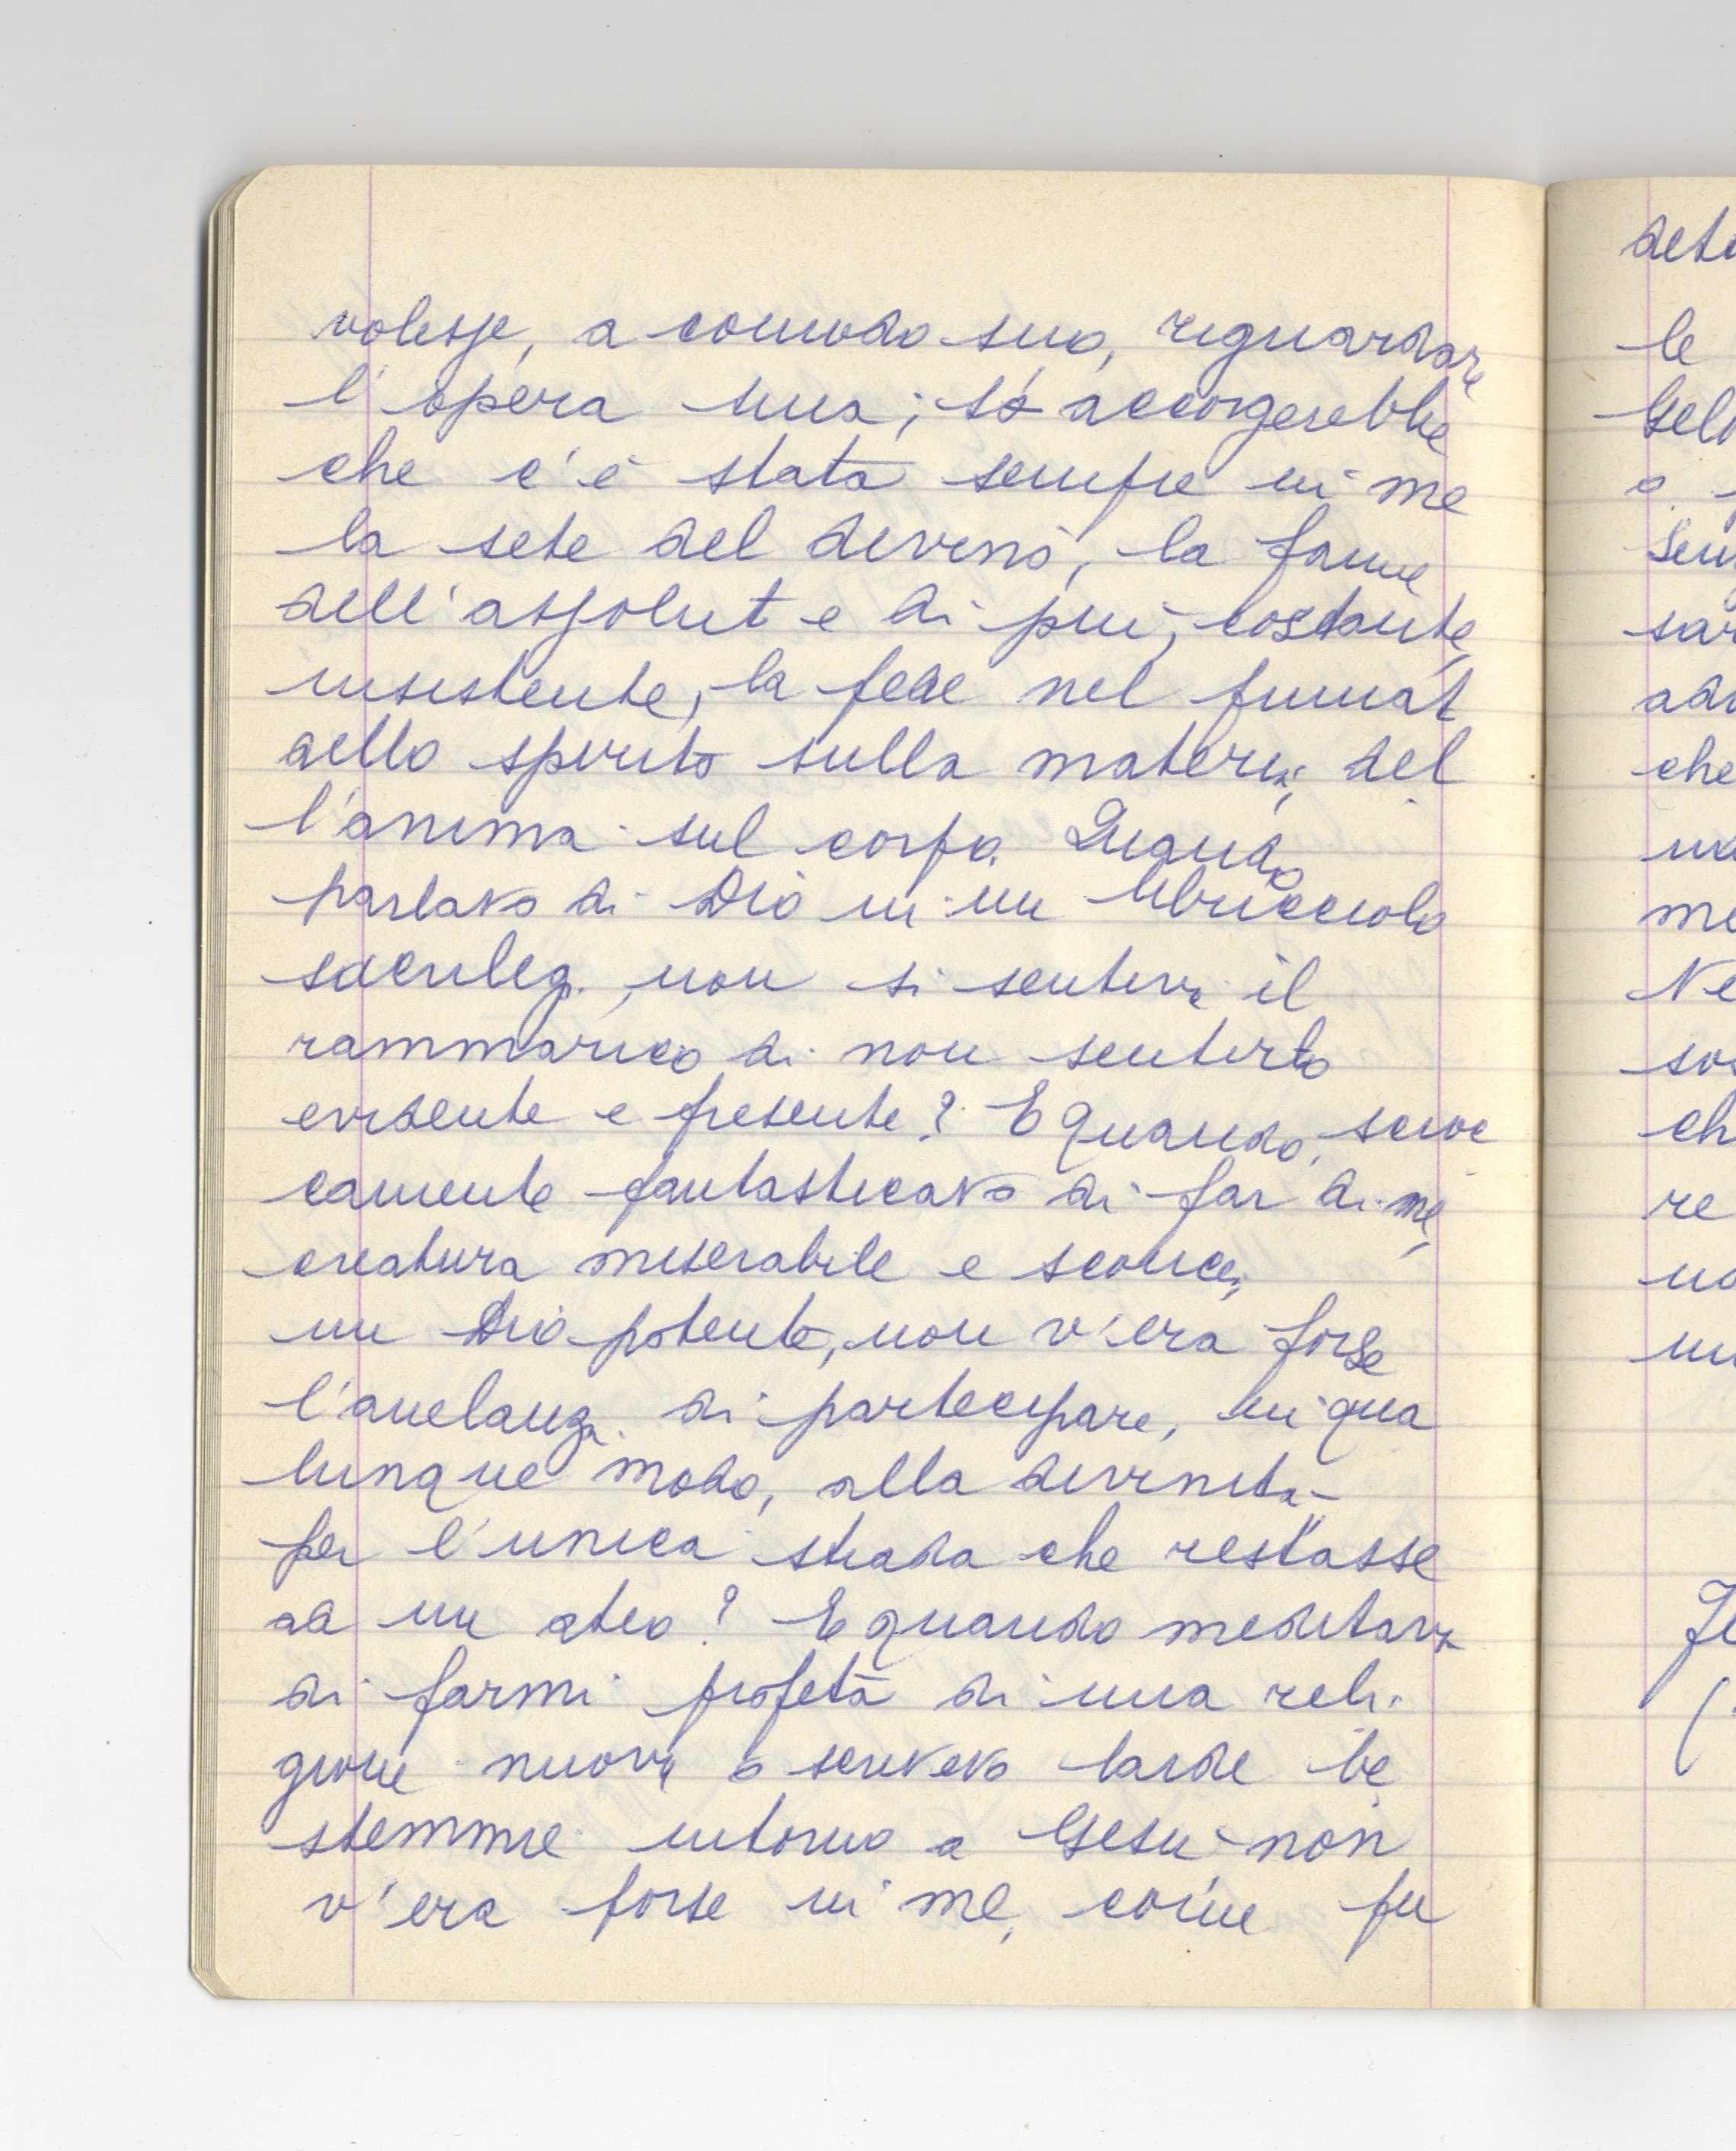 volesse, a comodo suo, riguardare
l'opera sua; s'accorgerebbe
che c'è stata sempre in me
la sete del divino, la fame
dell'assolut e di più, costante,
insistente, la fede nel primat
dello spirito sulla materia, del
l'anima sul corpo. Quando
parlavo di Dio in un libricciolo
sacrileg. non si sentiva il
rammarico di non sentirlo
evidente e presente? E quando, scioc
camente fantasticavo di far di me,
creatura miserabile e sconcia,
un Dio potente, non v'era forse
l'anelanza di partecipare, in qua
lunque modo, alla divinità -
per l'unica strada che restasse
ad un ateo? E quando meditava
di farmi profeta di una reli-
gione nuova o scrivevo larde be
stemmie intorno a Gesù non
v'era forse in me, come fu
dete
le
Gelo
o
sen
sar
ado
che
me
Ne
sos
ch
re
no
un